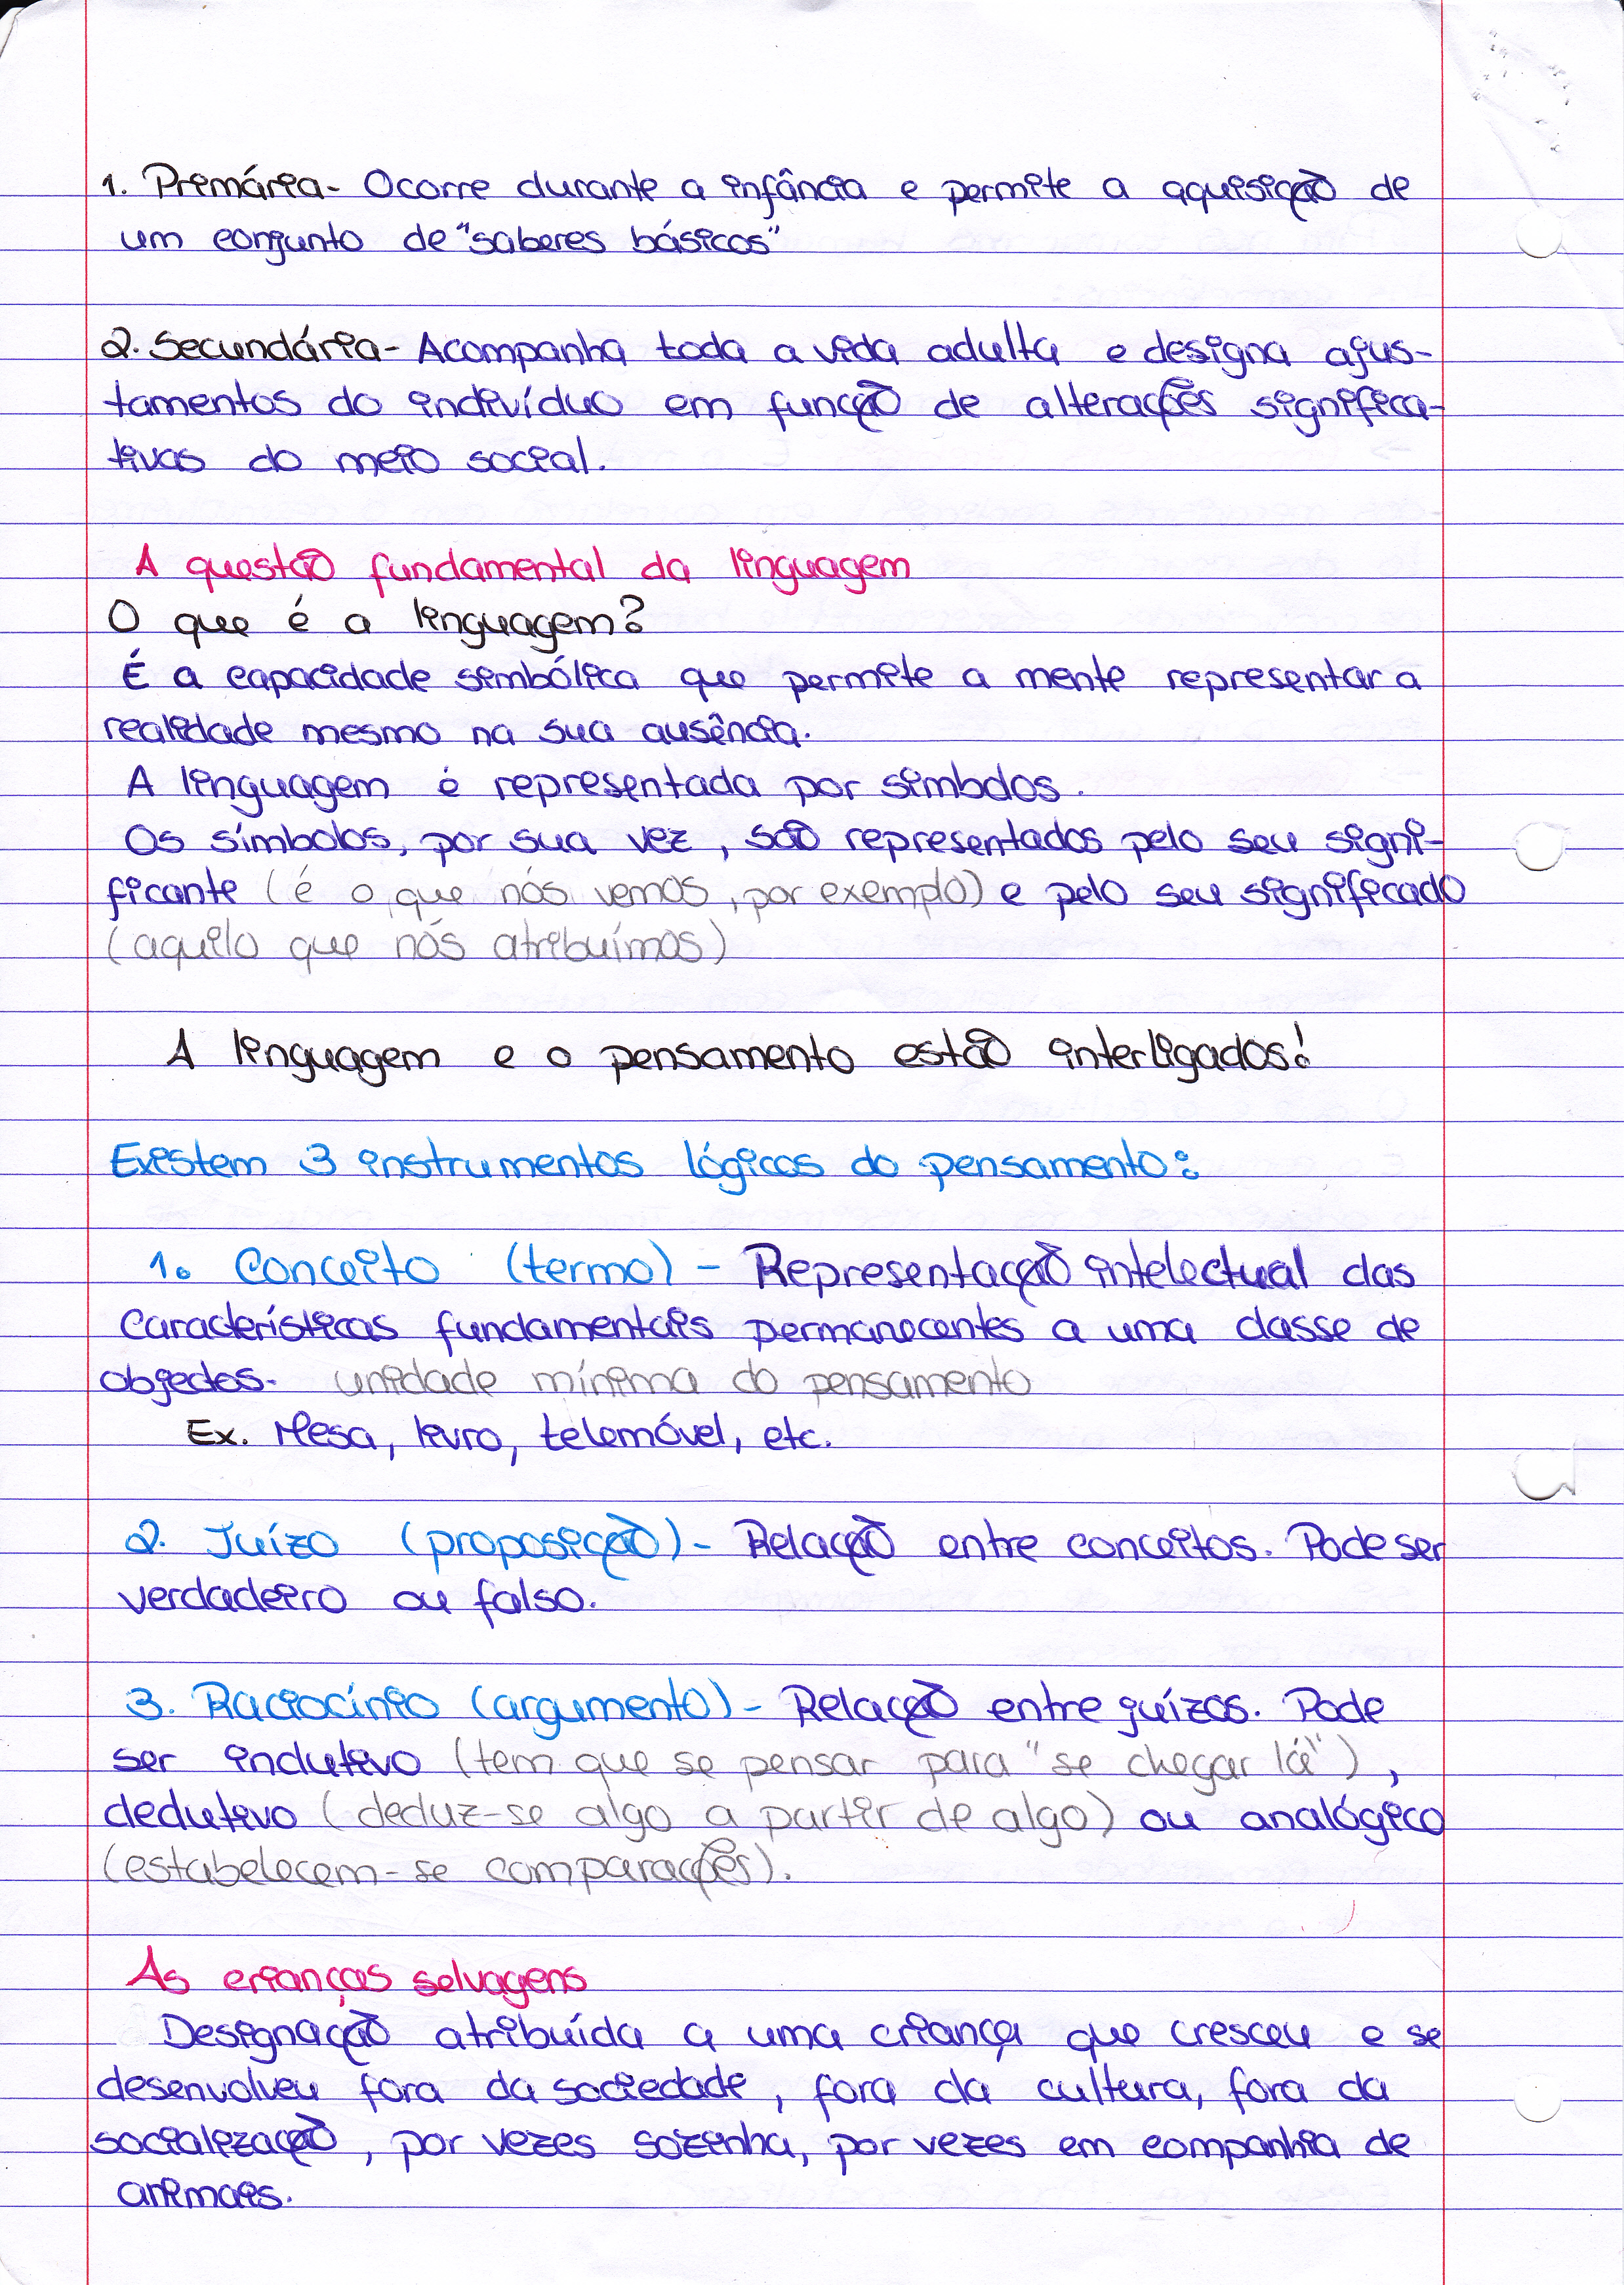 1. Primária- Ocorre durante a infância e permite a aquisição de
um conjunto de "saberes básicos"
2. Secundária- Acompanha toda a vida adulta e designa ajus-
tamentos do indivíduo em função de alterações significa-
tivas do meio social.
A questão fundamental da linguagem
O que é a linguagem?
É a capacidade simbólica que permite a mente representar a
realidade mesmo na sua ausência.
A linguagem é representada por símbolos.
Os símbolos, por sua vez, são representados pelo seu signi-
ficante (é o que nós vemos, por exemplo) e pelo seu significado
(aquilo que nós atribuímos)
A linguagem e o pensamento estão interligados!
Existem 3 instrumentos lógicos do pensamento:
1. Conceito (termo) - Representação intelectual das
Características fundamentais permanecentes a uma classe de
objectos. unidade mínima do pensamento
Ex. Mesa, livro, telemóvel, etc.
2. Juízo (proposição) - Relação entre conceitos. Pode ser
verdadeiro ou falso.
3. Raciocínio (argumento) - Relação entre juízos. Pode
ser indutivo (tem que se pensar para "se chegar lá"),
dedutivo (deduz-se algo a partir de algo) ou analógico
(estabelecem-se comparações).
As crianças selvagens
Designação atribuída a uma criança que cresceu e se
desenvolveu fora da sociedade, fora da cultura, fora da
socialização, por vezes sozinha, por vezes em companhia de
animais.